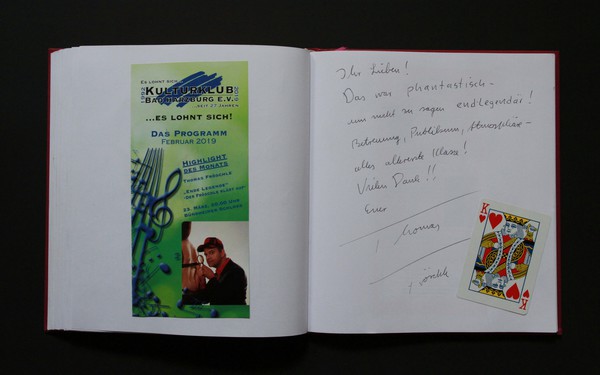 Es lohnt sich
1992 Kulturklub 2019
Bad Harzburg e.V.
seit 27 Jahren
...es lohnt sich!
Das Programm
Februar 2019
Highlight
des Monats
Thomas Fröschle
„Ende Legende"
Ihr Lieben!
Das war phantastisch -
um nicht zu sagen endlegendär!
Betreuung, Publikum, Atmosphäre -
alles allererste Klasse!
Vielen Dank!!
Euer
Thomas
Fröschle
K
K